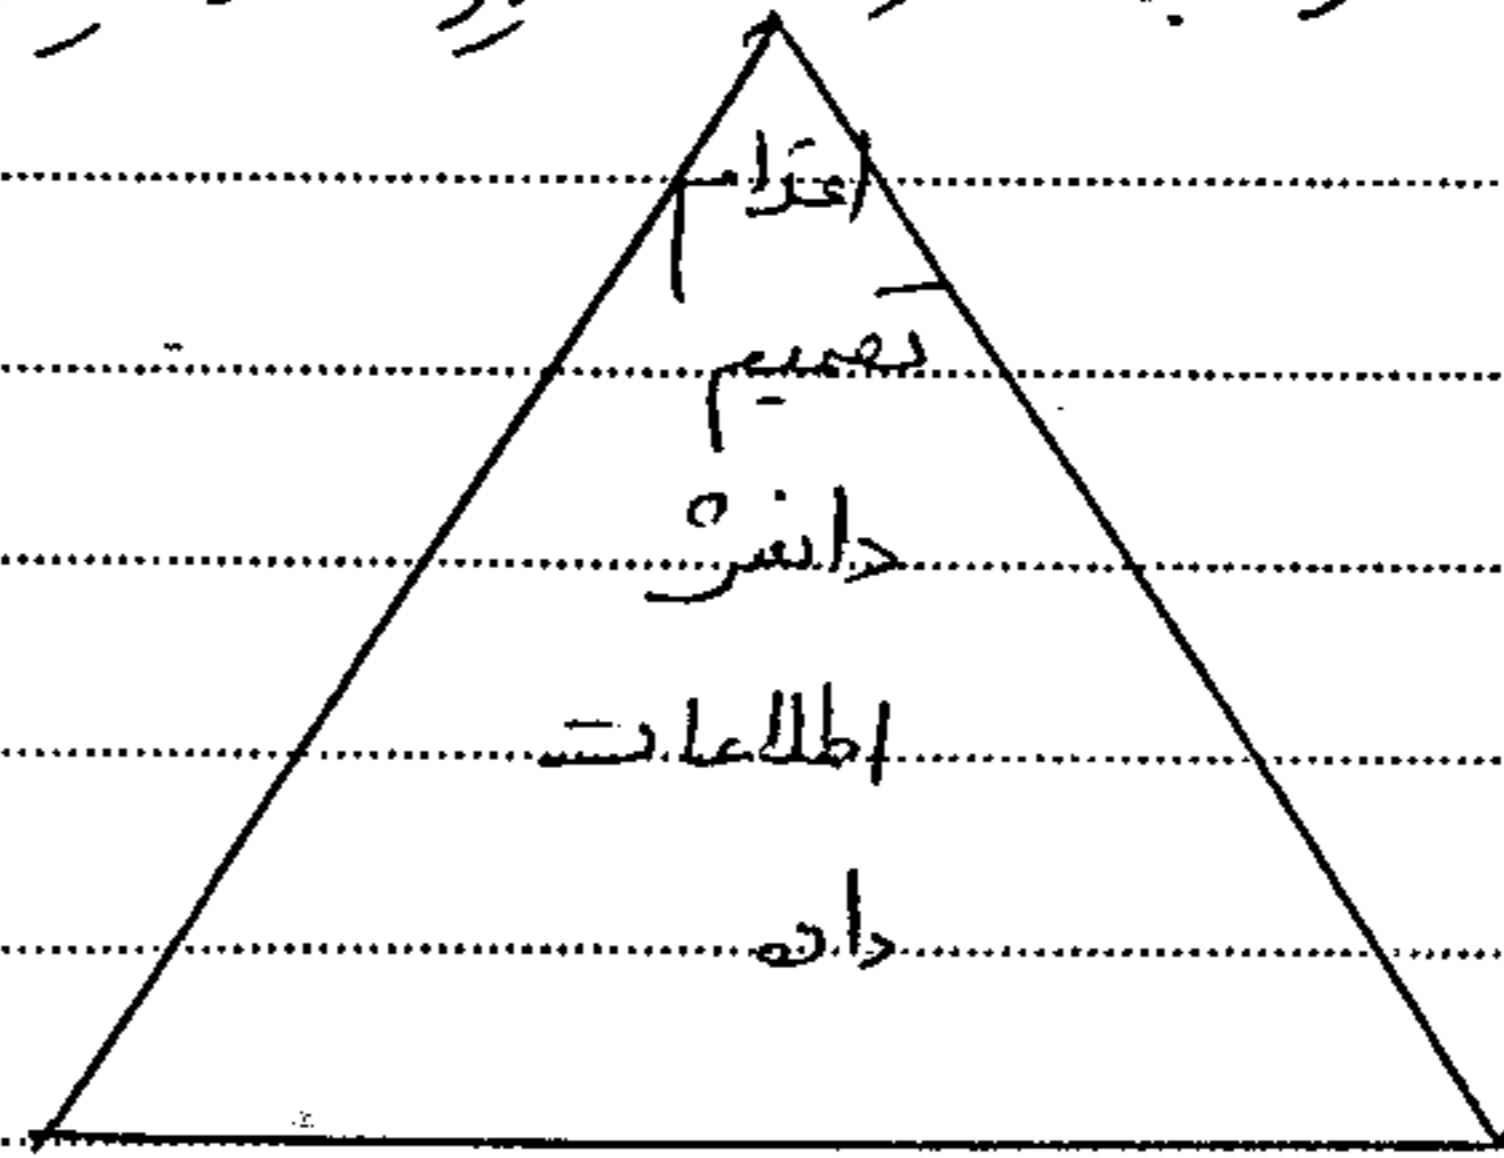 اقدام
تصمیم
دانش
اطلاعات
داده